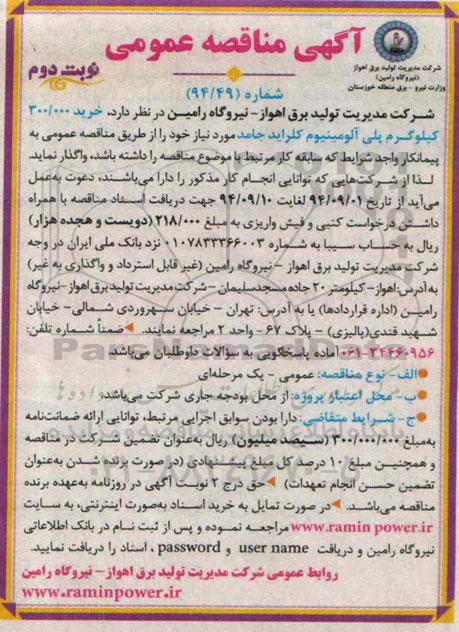 آگهی مناقصه عمومی
شرکت مدیریت تولید برق اهواز
(نیروگاه رامین)
وزارت نیرو - برق منطقه خوزستان
نوبت دوم
شماره (۹۴/۴۹)
شرکت مدیریت تولید برق اهواز- نیروگاه رامین در نظر دارد، خرید ۳۰۰/۰۰۰
کیلوگرم پلی آلومینیوم کلراید جامد مورد نیاز خود را از طریق مناقصه عمومی به
پیمانکار واجد شرایط که سابقه کار مرتبط با موضوع مناقصه را داشته باشد، واگذار نماید.
لذا از شرکت‌هایی که توانایی انجام کار مذکور را دارا می‌باشند، دعوت به‌عمل
می‌آید از تاریخ ۹۴/۰۹/۰۱ لغایت ۹۴/۰۹/۱۰ جهت دریافت اسناد مناقصه با همراه
داشتن درخواست کتبی و فیش واریزی به مبلغ ۲۱۸/۰۰۰ (دویست و هجده هزار)
ریال به حساب سیبا به شماره ۰۱۰۷۸۳۳۳۶۶۰۰۳ نزد بانک ملی ایران در وجه
شرکت مدیریت تولید برق اهواز - نیروگاه رامین (غیر قابل استرداد و واگذاری به غیر)
به آدرس: اهواز- کیلومتر ۲۰ جاده مسجدسلیمان - شرکت مدیریت تولید برق اهواز - نیروگاه
رامین (اداره قراردادها) یا به آدرس: تهران - خیابان سهروردی شمالی- خیابان
شهید قندی(پالیزی) - پلاک ۶۷- واحد ۲ مراجعه نمایند. ضمناً شماره تلفن:
۰۶۱-۳۴۴۶۰۹۵۶ آماده پاسخگویی به سوالات داوطلبان می‌باشد.
الف- نوع مناقصه: عمومی - یک مرحله‌ای
ب- محل اعتبار پروژه: از محل بودجه جاری شرکت می‌باشد.
ج- شرایط متقاضی: دارا بودن سوابق اجرایی مرتبط، توانایی ارائه ضمانت‌نامه
به‌مبلغ ۳۰۰/۰۰۰/۰۰۰ (سیصد میلیون) ریال به‌عنوان تضمین شرکت در مناقصه
و همچنین مبلغ ۱۰ درصد کل مبلغ پیشنهادی (در صورت برنده شدن به‌عنوان
تضمین حسن انجام تعهدات) حق درج ۲ نوبت آگهی در روزنامه به‌عهده برنده
مناقصه می‌باشد. در صورت تمایل به خرید اسناد به‌صورت اینترنتی، به سایت
www.ramin power.ir مراجعه نموده و پس از ثبت نام در بانک اطلاعاتی
نیروگاه رامین و دریافت user name و password ، اسناد را دریافت نمایید.
روابط عمومی شرکت مدیریت تولید برق اهواز- نیروگاه رامین
www.raminpower.ir
ParsNamadData